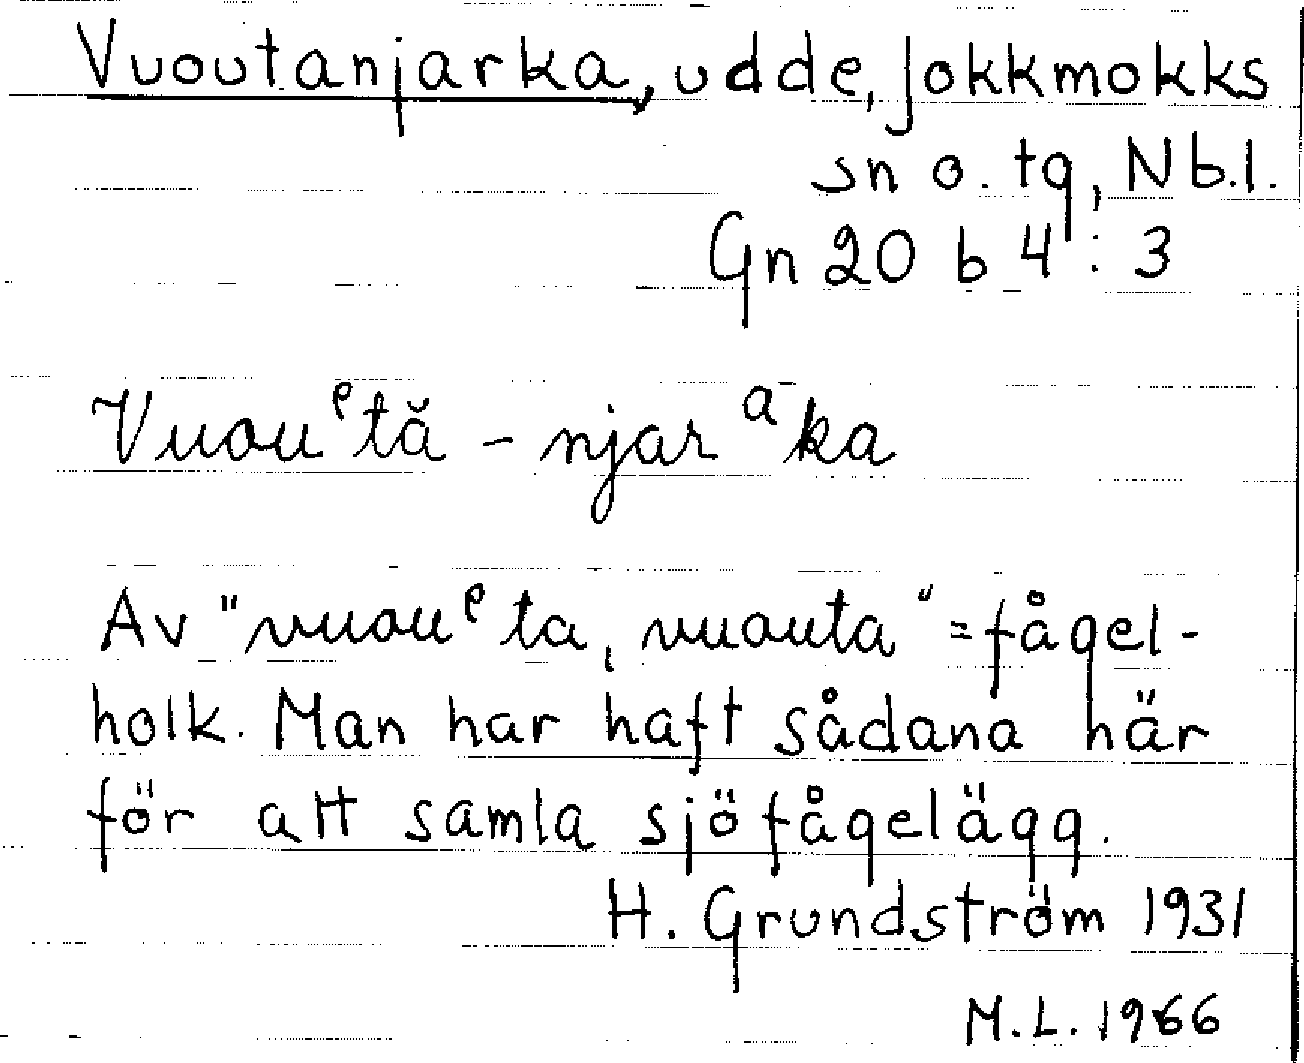 Vuoutanjarka, udde, Jokkmokks
sn o. tg, Nb.l.
Gn 20 b 4 : 3
Vuouᵉtă - njarᵃ̄ka
Av "vuouᵉta, vuouta" = fågel-
holk. Man har haft sådana här
för att samla sjöfågelägg.
H. Grundström 1931
M.L. 1966